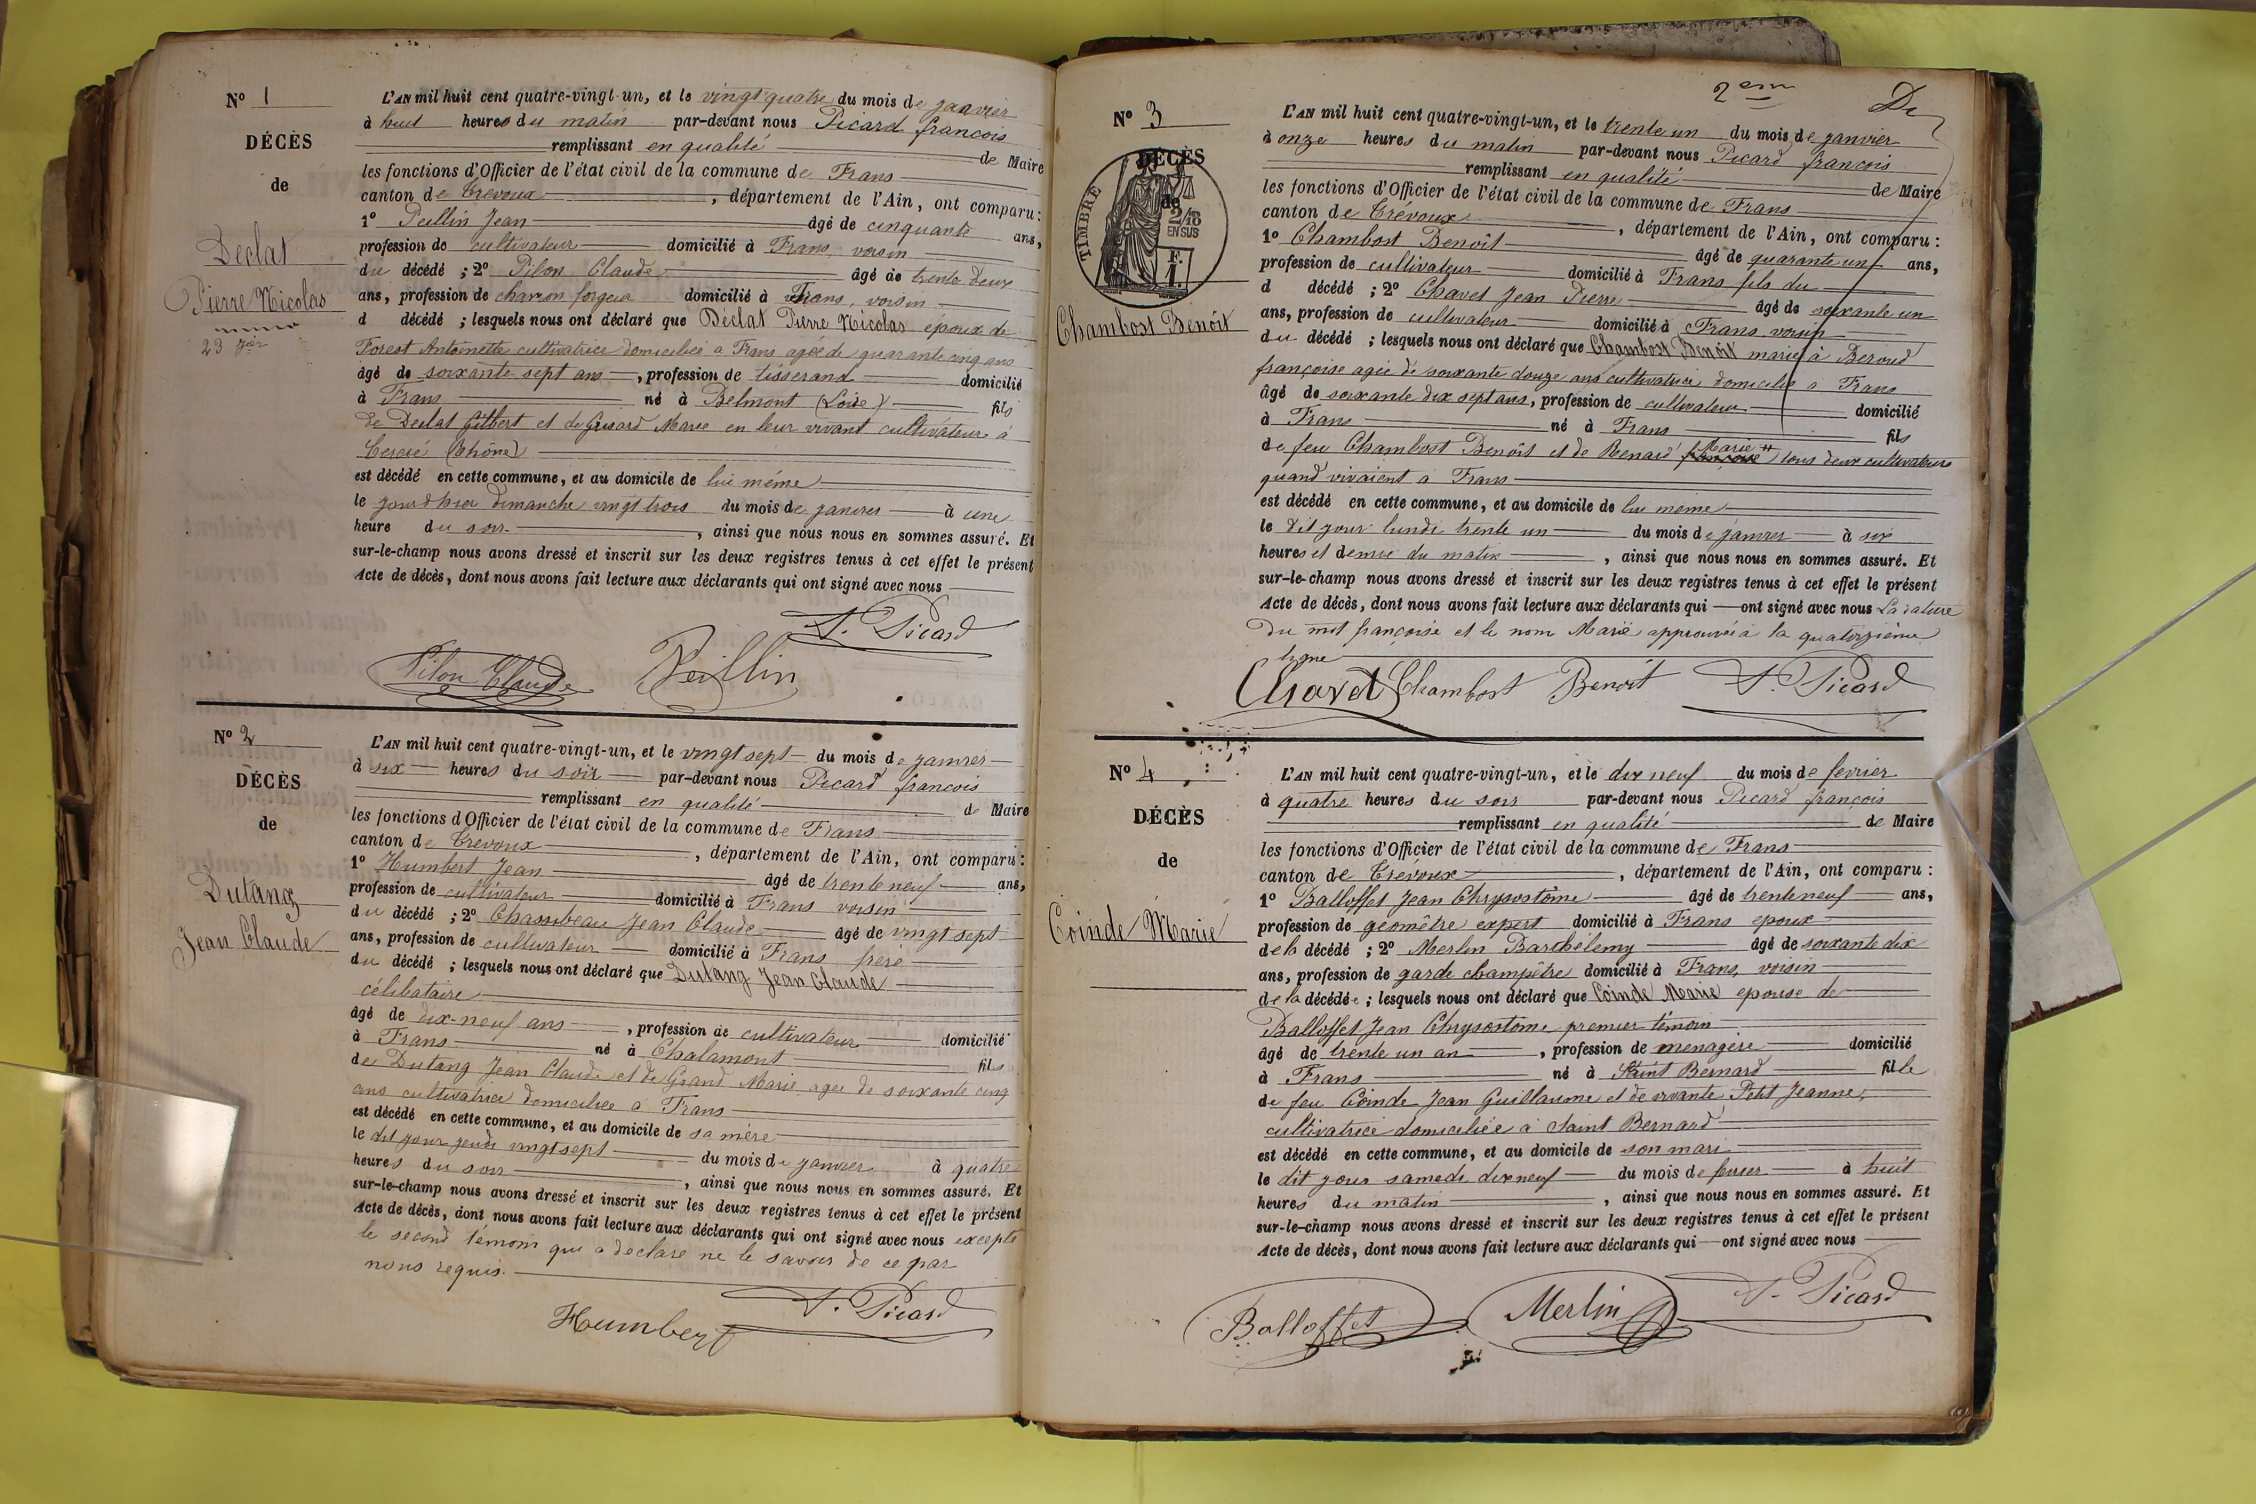 N° 1
DÉCÈS
de
Declat
Pierre Nicolas
23 jer
L'AN mil huit cent quatre-vingt-un, et le vingt quatre du mois de janvier
à huit heures du matin par-devant nous Picard francois
remplissant en qualité de Maire
les fonctions d'Officier de l'état civil de la commune de Frans
canton de Trevoux, département de l'Ain, ont comparu :
1° Peillin Jean âgé de cinquante ans,
profession de cultivateur domicilié à Frans, voisin
du décédé ; 2° Pilon Claude âgé de trente deux
ans, profession de charron forgeur domicilié à Frans, voisin
d décédé ; lesquels nous ont déclaré que Déclat Pierre Nicolas époux de
Forest Antoinette cultivatrice domiciliée a Frans agée de quarante cinq ans
âgé de soixante sept ans, profession de tisserand domicilié
à Frans né à Belmont (Loire) fils
de Declat Gilbert et de Grisard Marie en leur vivant cultivateur à
Cercié (Rhône)
est décédé en cette commune, et au domicile de lui même
le jour d'hier dimanche vingt trois du mois de janvier à une
heure du soir, ainsi que nous nous en sommes assuré. Et
sur-le-champ nous avons dressé et inscrit sur les deux registres tenus à cet effet le présent
Acte de décès, dont nous avons fait lecture aux déclarants qui ont signé avec nous
F. Picard
Pilon Claude Peillin
N° 2
DÉCÈS
de
Dutang
Jean Claude
L'AN mil huit cent quatre-vingt-un, et le vingt sept du mois de janvier
à six heures du soir par-devant nous Picard francois
remplissant en qualité de Maire
les fonctions d'Officier de l'état civil de la commune de Frans
canton de Trevoux, département de l'Ain, ont comparu :
1° Humbert Jean âgé de trente neuf ans,
profession de cultivateur domicilié à Frans voisin
du décédé ; 2° Chassibeau Jean Claude âgé de vingt sept
ans, profession de cultivateur domicilié à Frans frère
du décédé ; lesquels nous ont déclaré que Dutang Jean Claude
célibataire
âgé de dix-neuf ans, profession de cultivateur domicilié
à Frans né à Chalamont fils
de Dutang Jean Claude et de Grand Marie agée de soixante cinq
ans cultivatrice domiciliée a Frans
est décédé en cette commune, et au domicile de sa mère
le dit jour jeudi vingt sept du mois de janvier à quatre
heures du soir, ainsi que nous nous en sommes assuré. Et
sur-le-champ nous avons dressé et inscrit sur les deux registres tenus à cet effet le présent
Acte de décès, dont nous avons fait lecture aux déclarants qui ont signé avec nous excepté
le second témoin qui a déclaré ne le savoir de ce par
nous requis.
F. Picard
Humbert
2em
De
N° 3
DÉCÈS
de
TIMBRE
2/10
EN SUS
F.
1.
Chambost Benoît
L'AN mil huit cent quatre-vingt-un, et le trente un du mois de janvier
à onze heures du matin par-devant nous Picard françois
remplissant en qualité de Maire
les fonctions d'Officier de l'état civil de la commune de Frans
canton de Trévoux, département de l'Ain, ont comparu :
1° Chambost Benoît âgé de quarante un ans,
profession de cultivateur domicilié à Frans fils du
d décédé ; 2° Chavet Jean Pierre âgé de soixante un
ans, profession de cultivateur domicilié à Frans voisin
du décédé ; lesquels nous ont déclaré que Chambost Benoît marié à Beroud
françoise agée de soixante douze ans cultivatrice domiciliée a Frans
âgé de soixante dix sept ans, profession de cultivateur domicilié
à Frans né à Frans fils
de feu Chambost Benoît et de Renard françoise Marie tous deux cultivateurs
quand vivaient a Frans
est décédé en cette commune, et au domicile de lui même
le dit jour lundi trente un du mois de janvier à six
heures et demie du matin, ainsi que nous nous en sommes assuré. Et
sur-le-champ nous avons dressé et inscrit sur les deux registres tenus à cet effet le présent
Acte de décès, dont nous avons fait lecture aux déclarants qui ont signé avec nous La rature
du mot françoise et le nom Marie approuvés à la quatorzième
ligne
Chavet Chambost Benoît F. Picard
N° 4
DÉCÈS
de
Coinde Marie
L'AN mil huit cent quatre-vingt-un, et le dix neuf du mois de fevrier
à quatre heures du soir par-devant nous Picard françois
remplissant en qualité de Maire
les fonctions d'Officier de l'état civil de la commune de Frans
canton de Trévoux, département de l'Ain, ont comparu :
1° Balloffet Jean Chrysostôme âgé de trente neuf ans,
profession de géomètre expert domicilié à Frans epoux
de la décédé ; 2° Merlin Barthélemy âgé de soixante dix
ans, profession de garde champêtre domicilié à Frans, voisin
de la décédée ; lesquels nous ont déclaré que Coinde Marie epouse de
Balloffet Jean Chrysostôme premier témoin
âgé de trente un an, profession de menagère domicilié
à Frans né à Saint Bernard fille
de feu Coinde Jean Guillaume et de vivante Petit Jeanne,
cultivatrice domiciliée à Saint Bernard
est décédé en cette commune, et au domicile de son mari
le dit jour samedi dix neuf du mois de fevrier à huit
heures du matin, ainsi que nous nous en sommes assuré. Et
sur-le-champ nous avons dressé et inscrit sur les deux registres tenus à cet effet le présent
Acte de décès, dont nous avons fait lecture aux déclarants qui ont signé avec nous
F. Picard
Balloffet Merlin